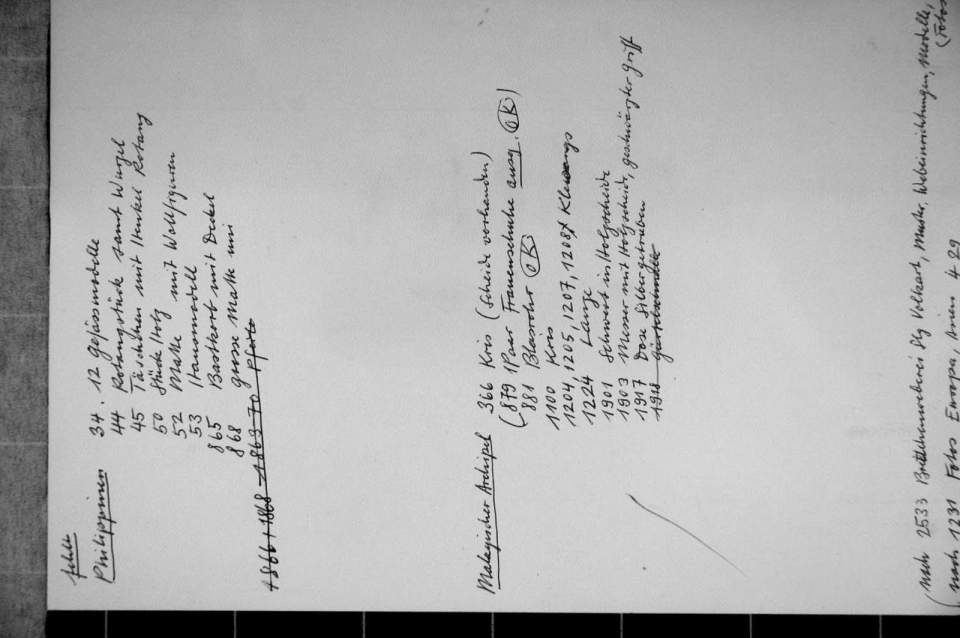 fehlt
Philippinen 34. 12 Gefässmodelle
44 Rotangstücke samt Wurzel
45 Täschchen mit Henkel Rotang
50 Stück Holz
52 Matte mit
53 Hausmodell
865 Bastkorb mit Deckel
868 grosse Matte
+866+1868 - 1863-70
Malayischer Archipel 366 Kris (Scheide vorhanden)
(879 1 Paar Frauenschuhe ausg. OK)
881 Blasrohr OK
1100 Kris
1204, 1205, 1207, 1208
1224 Lanze
1901 Schwert in Holzscheide
1903 Messer mit Holzscheide, geschwärzter Griff
1917 Dose Silber getrieben
1918
(nach 2533 Brettchenweberei Slg Volkart, Muster, Webeinrichtungen, Modelle, (Fotos
(nach 1231 Fotos Europa, 429